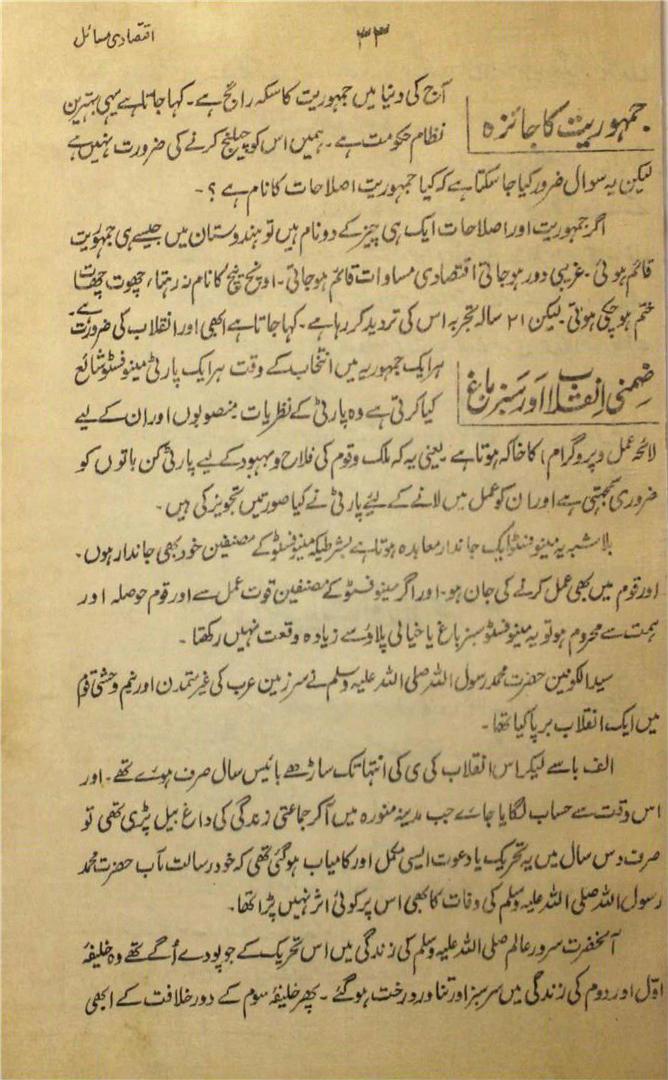 اقتصادی مسائل
۳۳
جمہوریت کا جائزہ
آج کی دنیا میں جمہوریت کا سکہ رائج ہے۔ کہا جاتا ہے یہی بہترین
نظام حکومت ہے۔ ہمیں اس کو چیلنج کرنے کی ضرورت نہیں ہے
لیکن یہ سوال ضرور کیا جا سکتا ہے کہ کیا جمہوریت اصلاحات کا نام ہے ؟ ۔
اگر جمہوریت اور اصلاحات ایک ہی چیز کے دو نام ہیں تو ہندوستان میں جیسے ہی جمہوریت
قائم ہوئی۔ غریبی دور ہو جاتی اقتصادی مساوات قائم ہو جاتی۔ اونچ نیچ کا نام نہ رہتا، چھوت چھات
ختم ہو چکی ہوتی لیکن ۲۱ سالہ تجربہ اس کی تردید کر رہا ہے۔ کہا جاتا ہے ابھی اور انقلاب کی ضرورت ہے۔
ضمنی انقلاب اور سبز باغ
ہر ایک جمہوریہ میں انتخاب کے وقت ہر ایک پارٹی مینوفسٹو شائع
کیا کرتی ہے وہ پارٹی کے نظریات منصوبوں اور ان کے لیے
لائحہ عمل (پروگرام) کا خاکہ ہوتا ہے یعنی یہ کہ ملک و قوم کی فلاح و بہبود کے لیے پارٹی کن باتوں کو
ضروری سمجھتی ہے اور ان کو عمل میں لانے کے لیئے پارٹی نے کیا صورتیں تجویز کی ہیں۔
بلا شبہ یہ مینوفسٹو ایک جاندار معاہدہ ہوتا ہے بشرطیکہ مینوفسٹو کے مصنفین خود بھی جاندار ہوں۔
اور قوم میں بھی عمل کرنے کی جان ہو۔ اور اگر مینوفسٹو کے مصنفین قوت عمل سے اور قوم حوصلہ اور
ہمت سے محروم ہو تو یہ مینوفسٹو سبز باغ یا خیالی پلاؤ سے زیادہ وقعت نہیں رکھتا۔
سید الکونین حضرت محمد رسول اللہ صلی اللہ علیہ وسلم نے سرزمین عرب کی غیر متمدن اور نیم وحشی قوم
میں ایک انقلاب برپا کیا تھا۔
الف با سے لیکر اس انقلاب کی ی کی انتہا تک ساڑھے بائیس سال صرف ہوئے تھے۔ اور
اس وقت سے حساب لگایا جائے جب مدینہ منورہ میں آ کر جماعتی زندگی کی داغ بیل پڑی تھی تو
صرف دس سال میں یہ تحریک یا دعوت ایسی مکمل اور کامیاب ہو گئی تھی کہ خود رسالت مآب حضرت محمد
رسول اللہ صلی اللہ علیہ وسلم کی وفات کا بھی اس پر کوئی اثر نہیں پڑا تھا۔
آنحضرت سرور عالم صلی اللہ علیہ وسلم کی زندگی میں اس تحریک کے جو پودے اُگے تھے وہ خلیفۂ
اوّل اور دوم کی زندگی میں سرسبز اور تناور درخت ہو گئے۔ پھر خلیفۂ سوم کے دور خلافت کے ابھی